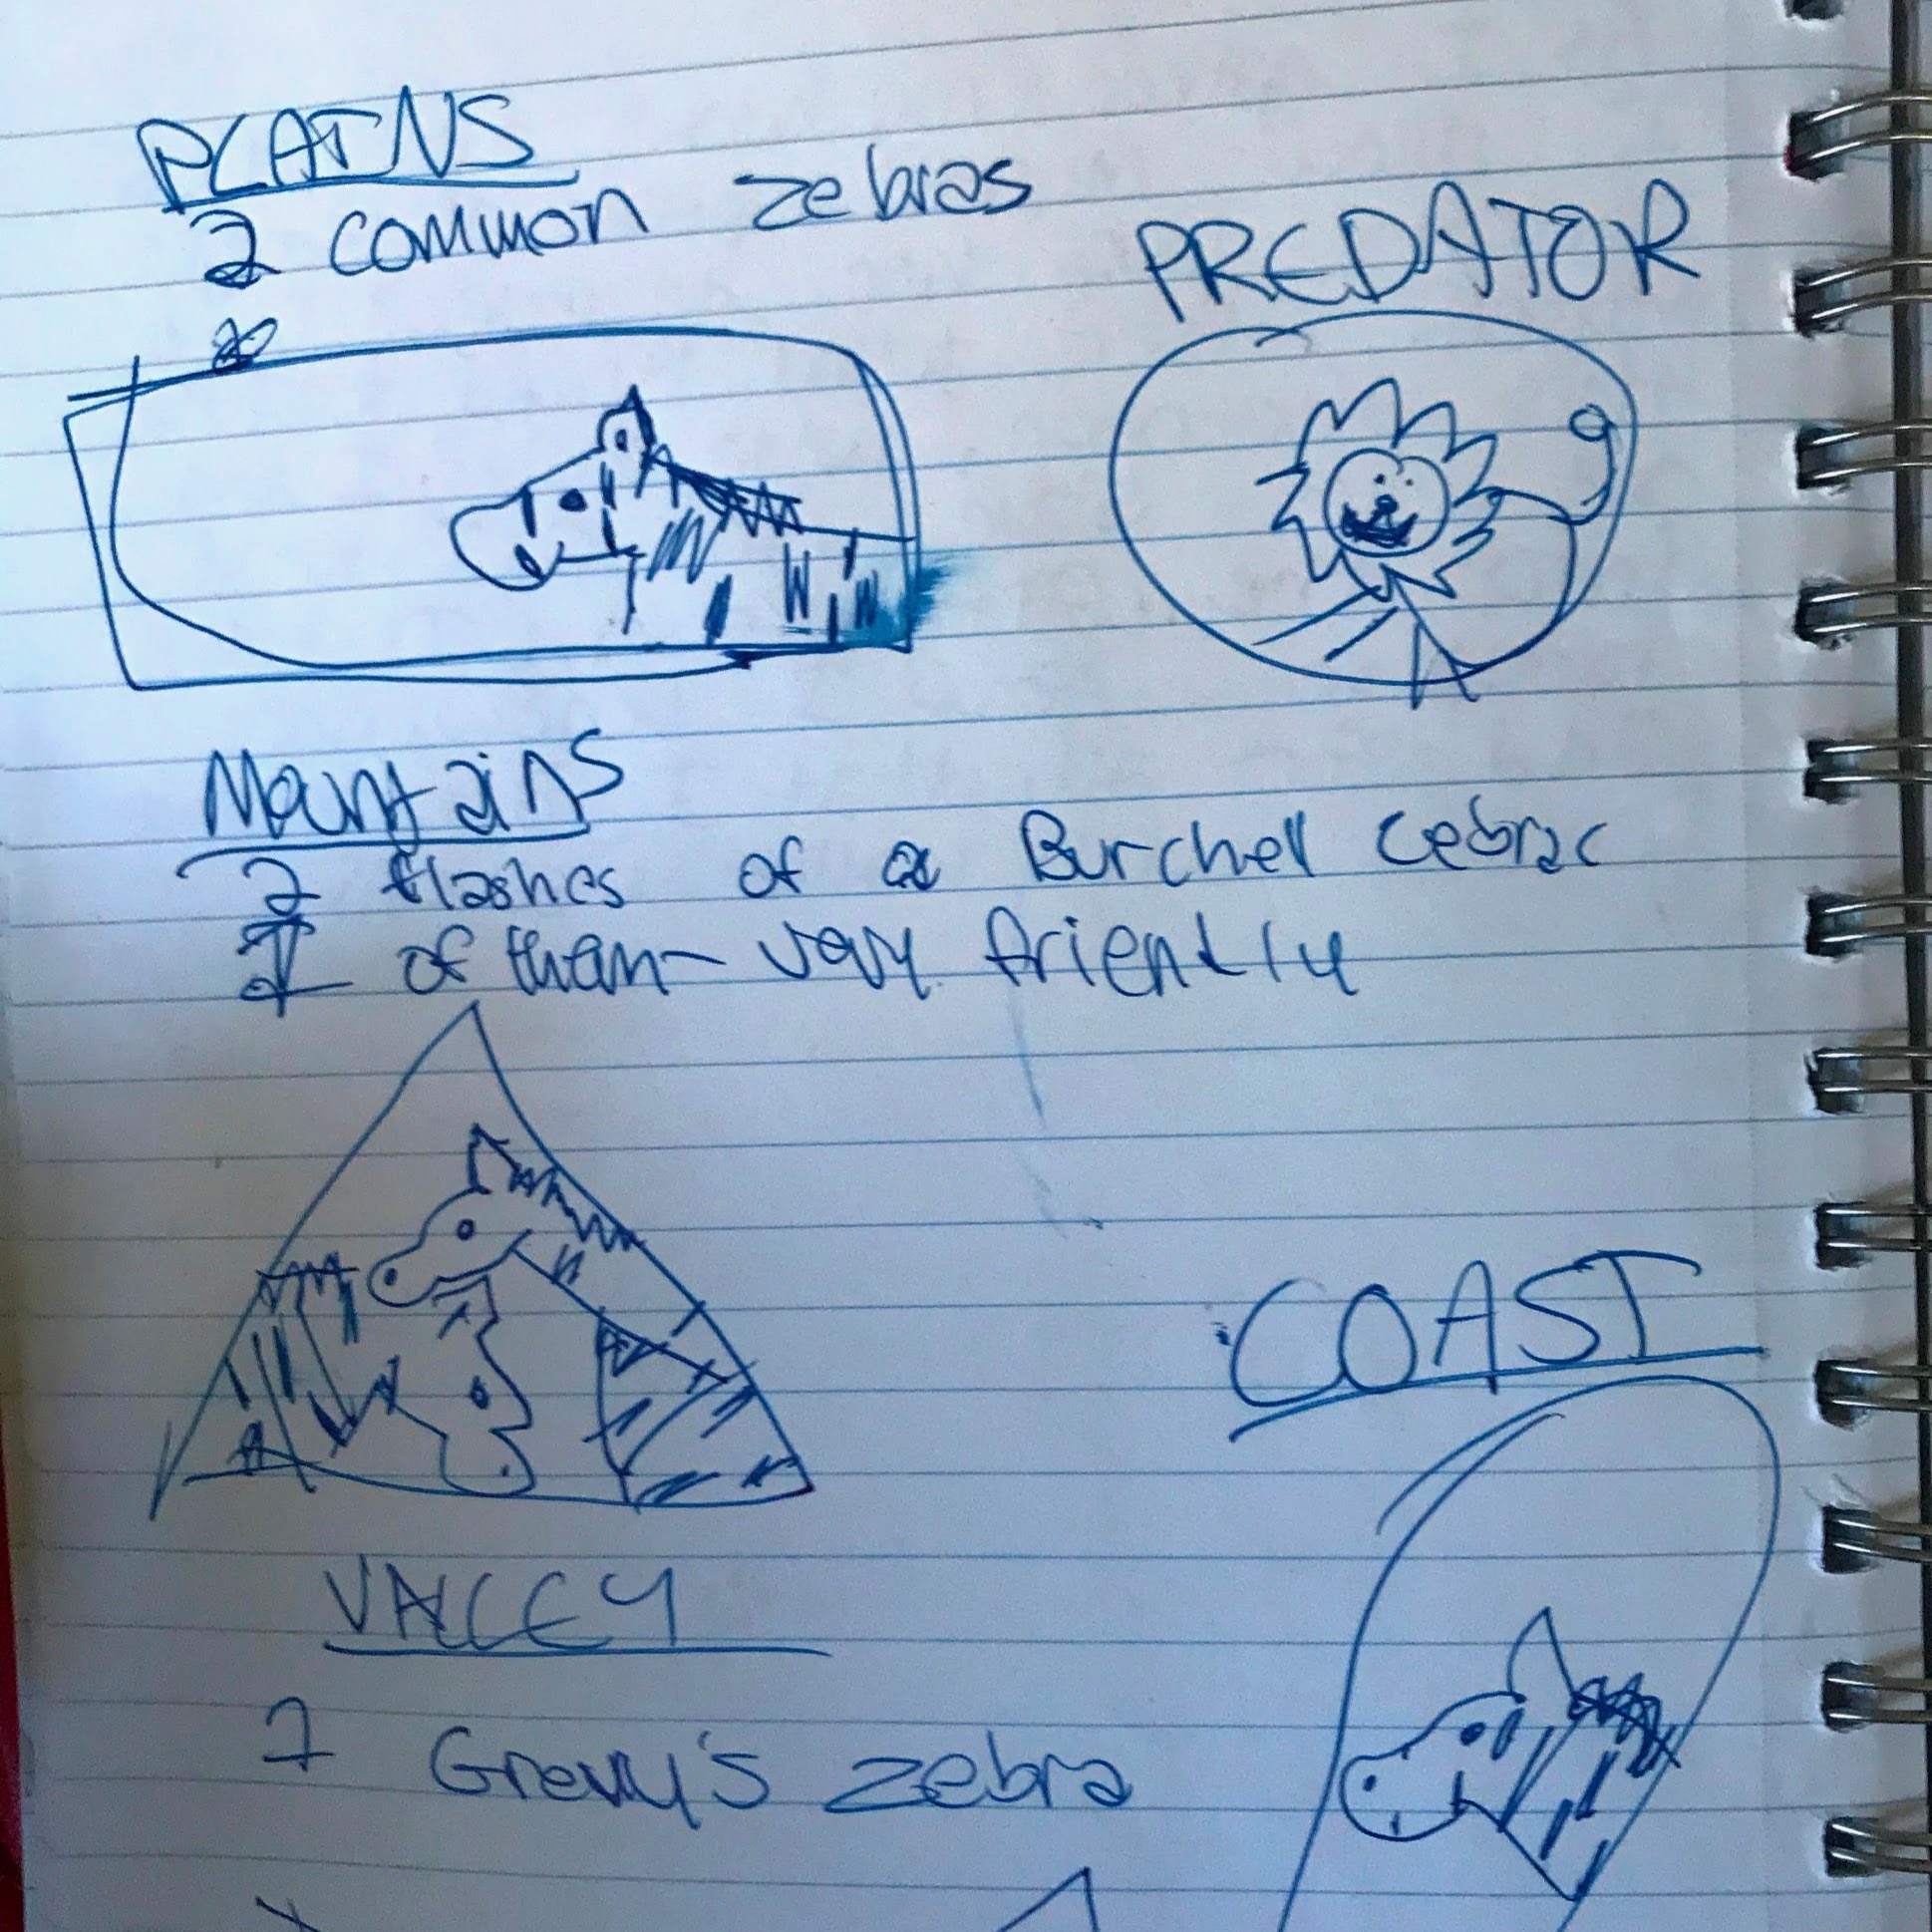 PLAINS
2 common zebras
PREDATOR
Mountains
2 flashes of a Burchell
1 of them - very friendly
COAST
VALLEY
1 Grevy's zebra